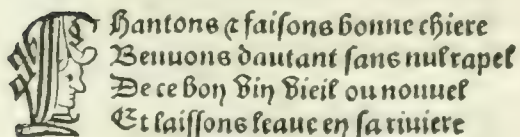 Chantons & faiſons bonne chiere
Beuuons dautant ſans nul rapel
De ce bon vin vieil ou nouuel
Et laiſſons leaue en ſa riuiere